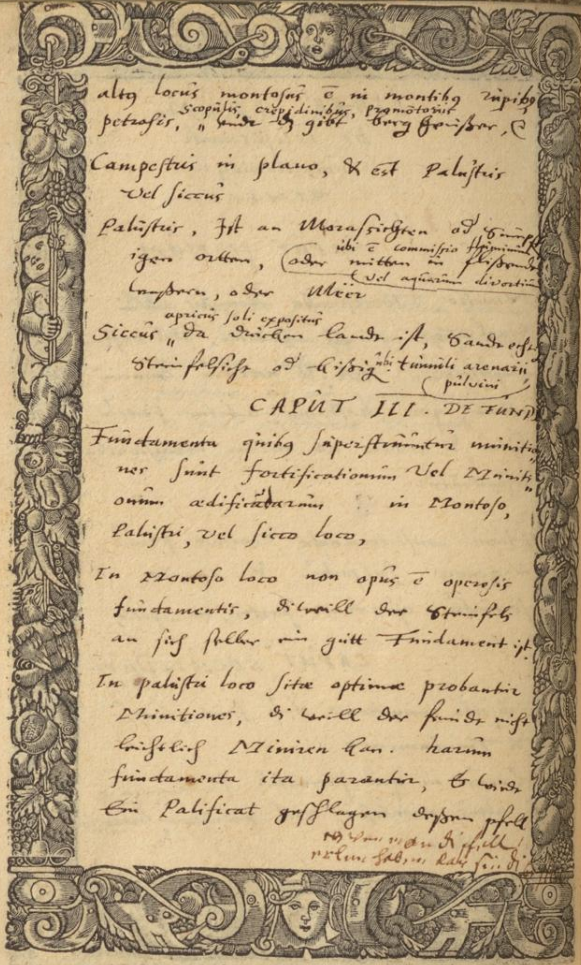 altus locus montosus ē in montibus rupibus
scopulis, crepidinibus, promontoriis
petrosis, gibt berg
Campestris in plano, & est Palustris
vel siccus
Palustris, Ist an Morassichten od Sumpf
ubi ē commissio fluminum
igen orten, (oder mitten in flißende
vel aquarum divortium
waßern, oder Meer
apricus soli expositus
Siccus, da drucken lande ist, Sandecht
Steinfelsicht od kißig ubi tumuli arenarii
pulvini
CAPUT III. DE FUND
Fundamenta quibus superstruuntur munitio
nes sunt fortificationum vel Muniti
onum in Montoso,
Palustri, vel sicco loco,
In Montoso loco non opus ē operosis
fundamentis, diweill der Steinfels
an sich selber ein gutt Fundament ist
In palustri loco sitæ optimæ probantur
Munitiones, di weill der feinde nicht
leichtlich Miniren kan. harum
fundamenta ita parantur, Es wirdt
Ein Palificat geschlagen deßen pfell